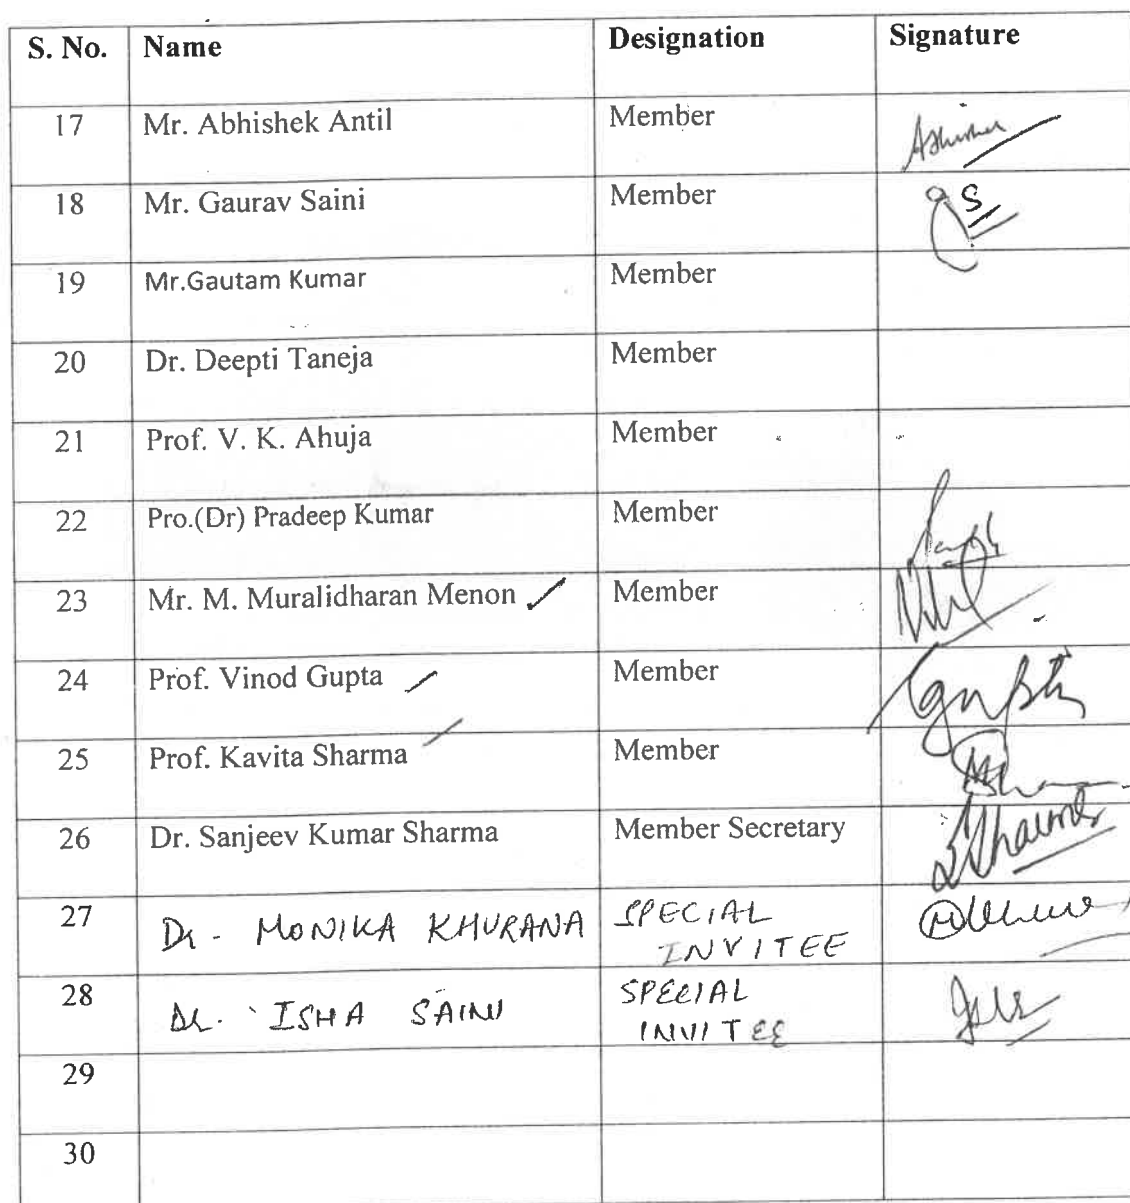 S. No. Name Designation Signature
17 Mr. Abhishek Antil Member
18 Mr. Gaurav Saini Member
19 Mr.Gautam Kumar Member
20 Dr. Deepti Taneja Member
21 Prof. V. K. Ahuja Member
22 Pro.(Dr) Pradeep Kumar Member
23 Mr. M. Muralidharan Menon Member
24 Prof. Vinod Gupta Member
25 Prof. Kavita Sharma Member
26 Dr. Sanjeev Kumar Sharma Member Secretary
27 Dr. MONIKA KHURANA SPECIAL
INVITEE
28 Dr. ISHA SAINI SPECIAL
INVITEE
29
30